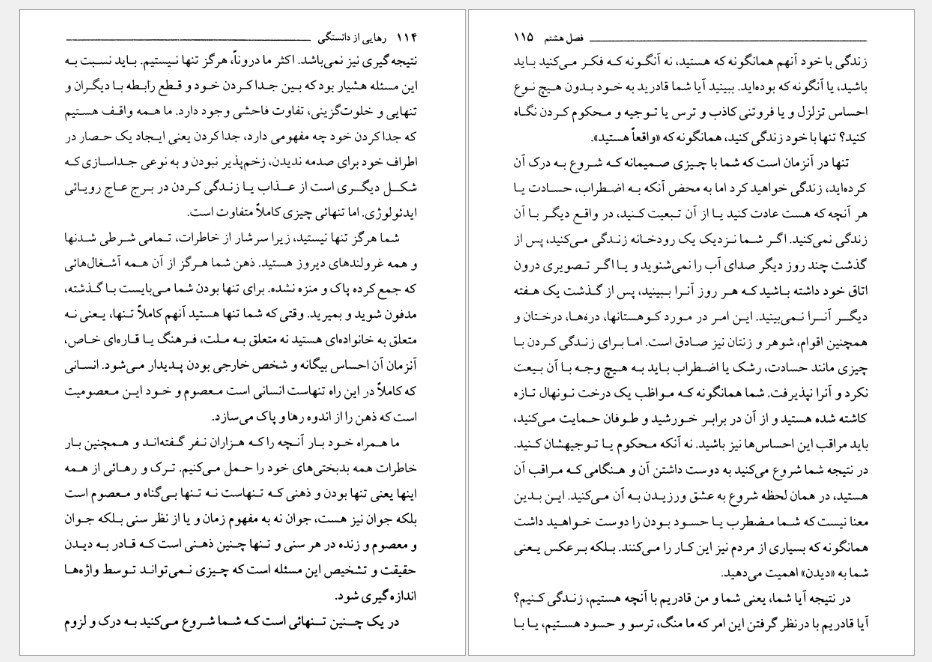 ۱۱۴ رهایی از دانستگی
نتیجه‌گیری نیز نمی‌باشد. اکثر ما دروناً، هرگز تنها نیستیم. باید نسبت به
این مسئله هشیار بود که بین جدا کردن خود و قطع رابطه با دیگران و
تنهایی و خلوت‌گزینی، تفاوت فاحشی وجود دارد. ما همه واقف هستیم
که جدا کردن خود چه مفهومی دارد، جدا کردن یعنی ایجاد یک حصار در
اطراف خود برای صدمه ندیدن، زخم‌پذیر نبودن و به نوعی جداسازی که
شکل دیگری است از عذاب یا زندگی کردن در برج عاج رویائی
ایدئولوژی. اما تنهائی چیزی کاملاً متفاوت است.
شما هرگز تنها نیستید، زیرا سرشار از خاطرات، تمامی شرطی شدنها
و همه غرولندهای دیروز هستید. ذهن شما هرگز از آن همه آشغال‌هائی
که جمع کرده پاک و منزه نشده. برای تنها بودن شما می‌بایست با گذشته،
مدفون شوید و بمیرید. وقتی که شما تنها هستید آنهم کاملاً تنها، یعنی نه
متعلق به خانواده‌ای هستید نه متعلق به ملت، فرهنگ یا قاره‌ای خاص،
آنزمان آن احساس بیگانه و شخص خارجی بودن پدیدار می‌شود. انسانی
که کاملاً در این راه تنهاست انسانی است معصوم و خود این معصومیت
است که ذهن را از اندوه رها و پاک می‌سازد.
ما همراه خود بار آنچه را که هزاران نفر گفته‌اند و همچنین بار
خاطرات همه بدبختی‌های خود را حمل می‌کنیم. ترک و رهائی از همه
اینها یعنی تنها بودن و ذهنی که تنهاست نه تنها بی‌گناه و معصوم است
بلکه جوان نیز هست، جوان نه به مفهوم زمان و یا از نظر سنی بلکه جوان
و معصوم و زنده در هر سنی و تنها چنین ذهنی است که قادر به دیدن
حقیقت و تشخیص این مسئله است که چیزی نمی‌تواند توسط واژه‌ها
اندازه‌گیری شود.
در یک چنین تنهائی است که شما شروع می‌کنید به درک و لزوم
فصل هشتم ۱۱۵
زندگی با خود آنهم همانگونه که هستید، نه آنگونه که فکر می‌کنید باید
باشید، یا آنگونه که بوده‌اید. ببینید آیا شما قادرید به خود بدون هیچ نوع
احساس تزلزل و یا فروتنی کاذب و ترس یا توجیه و محکوم کردن نگاه
کنید؟ تنها با خود زندگی کنید، همانگونه که «واقعاً هستید».
تنها در آنزمان است که شما با چیزی صمیمانه که شروع به درک آن
کرده‌اید، زندگی خواهید کرد اما به محض آنکه به اضطراب، حسادت یا
هر آنچه که هست عادت کنید یا از آن تبعیت کنید، در واقع دیگر با آن
زندگی نمی‌کنید. اگر شما نزدیک یک رودخانه زندگی می‌کنید، پس از
گذشت چند روز دیگر صدای آب را نمی‌شنوید و یا اگر تصویری درون
اتاق خود داشته باشید که هر روز آنرا ببینید، پس از گذشت یک هفته
دیگر آنرا نمی‌بینید. این امر در مورد کوهستانها، دره‌ها، درختان و
همچنین اقوام، شوهر و زنتان نیز صادق است. اما برای زندگی کردن با
چیزی مانند حسادت، رشک یا اضطراب باید به هیچ وجه با آن بیعت
نکرد و آنرا نپذیرفت. شما همانگونه که مواظب یک درخت نونهال تازه
کاشته شده هستید و از آن در برابر خورشید و طوفان حمایت می‌کنید،
باید مراقب این احساس‌ها نیز باشید. نه آنکه محکوم یا توجیهشان کنید.
در نتیجه شما شروع می‌کنید به دوست داشتن آن و هنگامی که مراقب آن
هستید، در همان لحظه شروع به عشق ورزیدن به آن می‌کنید. این بدین
معنا نیست که شما مضطرب یا حسود بودن را دوست خواهید داشت
همانگونه که بسیاری از مردم نیز این کار را می‌کنند. بلکه برعکس یعنی
شما به «دیدن» اهمیت می‌دهید.
در نتیجه آیا شما، یعنی شما و من قادریم با آنچه هستیم، زندگی کنیم؟
آیا قادریم با درنظر گرفتن این امر که ما منگ، ترسو و حسود هستیم، یا با